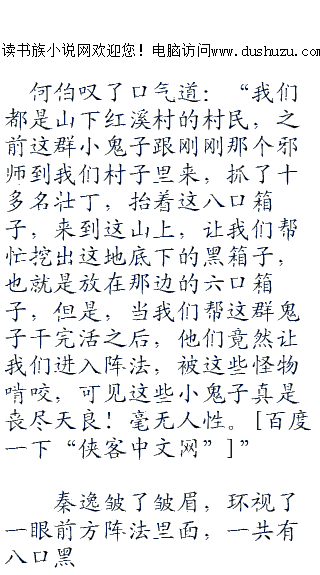 读书族小说网欢迎您！电脑访问www.dushuzu.com
何伯叹了口气道：“我们
都是山下红溪村的村民，之
前这群小鬼子跟刚刚那个邪
师到我们村子里来，抓了十
多名壮丁，抬着这八口箱
子，来到这山上，让我们帮
忙挖出这地底下的黑箱子，
也就是放在那边的六口箱
子，但是，当我们帮这群鬼
子干完活之后，他们竟然让
我们进入阵法，被这些怪物
啃咬，可见这些小鬼子真是
丧尽天良！毫无人性。[百度
一下“侠客中文网”]”
秦逸皱了皱眉，环视了
一眼前方阵法里面，一共有
八口黑